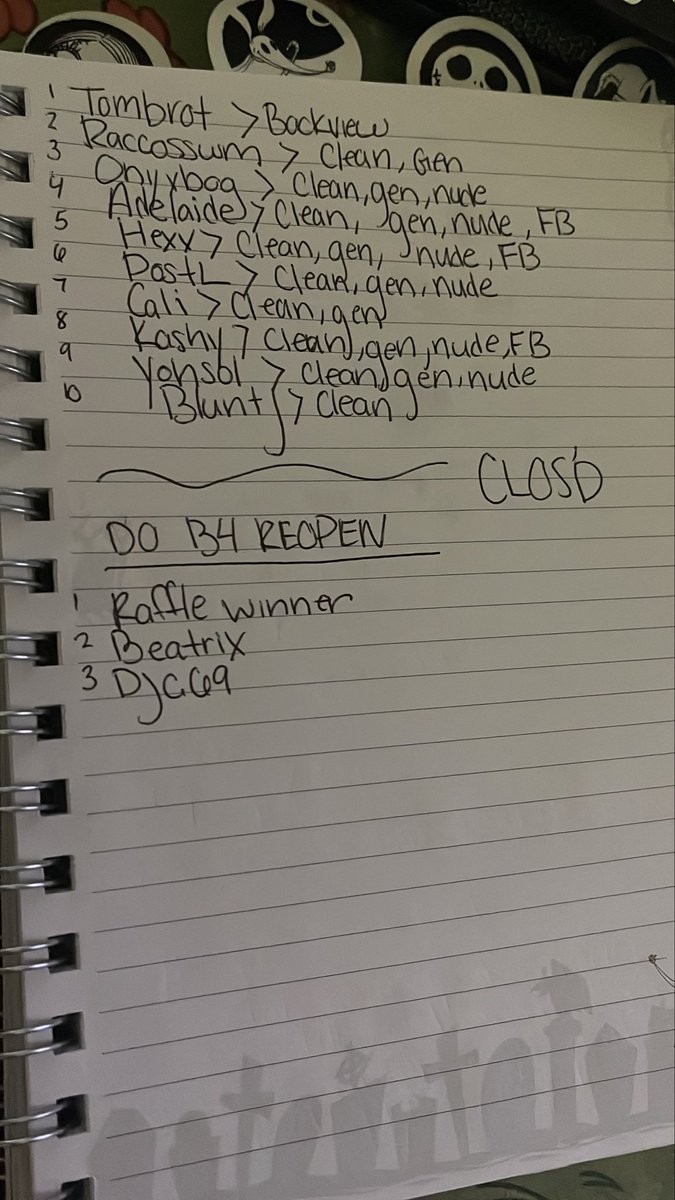 1 Tombrot > Backview
2 Raccossum > Clean, Gen
3 Onyxbog > Clean, gen, nude
4 Adelaide > Clean, gen, nude, FB
5 Hexy > Clean, gen, nude, FB
6 DastL > Clean, gen, nude
7 Cali > Clean, gen
8 Kashy > Clean, gen, nude, FB
9 Yonsol > clean, gen, nude
10 Blunt > Clean
CLOS'D
DO B4 REOPEN
1 Raffle winner
2 Beatrix
3 DJCG9